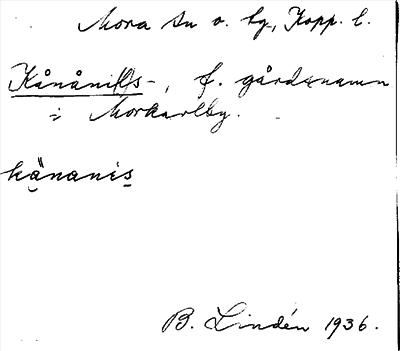 Mora sn o. tg., Kopp. l.
Kånåni(l)s-, f. gårdsnamn
i Morkarlby.
känanis
B. Lindén 1936.